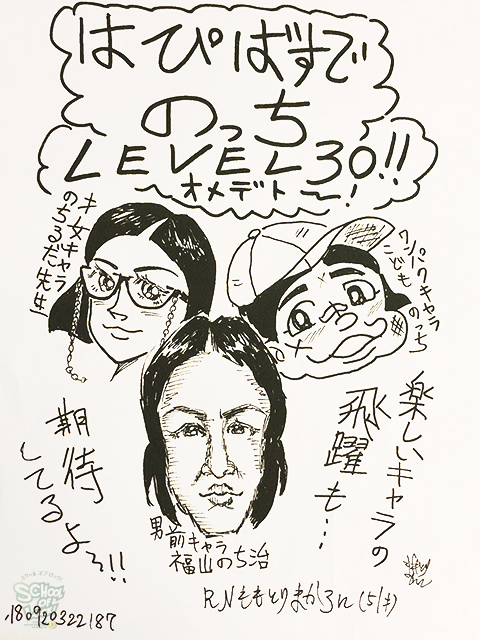 はぴばすで
のっち
LEVEL30!!
オメデト〜!
キ女キャラ
のちるだ先生
ワンパクキャラ
こども のっち
男前キャラ
福山のち治
楽しいキャラの
飛躍も…
期待
してるよぞ!!
RNももとりまかろん(51才)
スクール オブ ロック!
SCHOOL OF LOCK!
180920322187